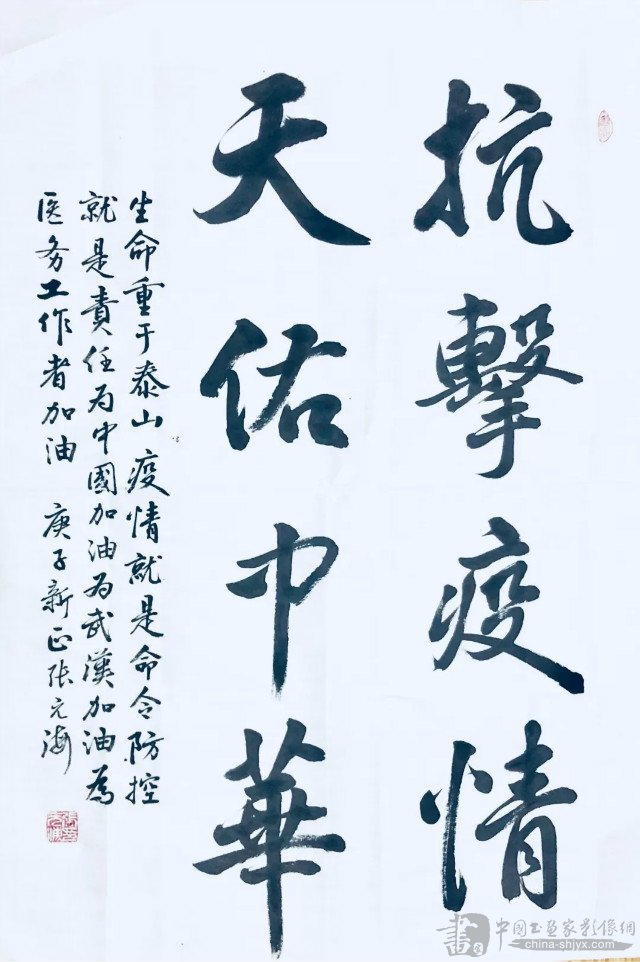 抗擊疫情
天佑中華
生命重于泰山疫情就是命令防控
就是責任为中國加油为武漢加油為
医务工作者加油 庚子新正張元海
書
中國书画家影像網
china-shjyx.com